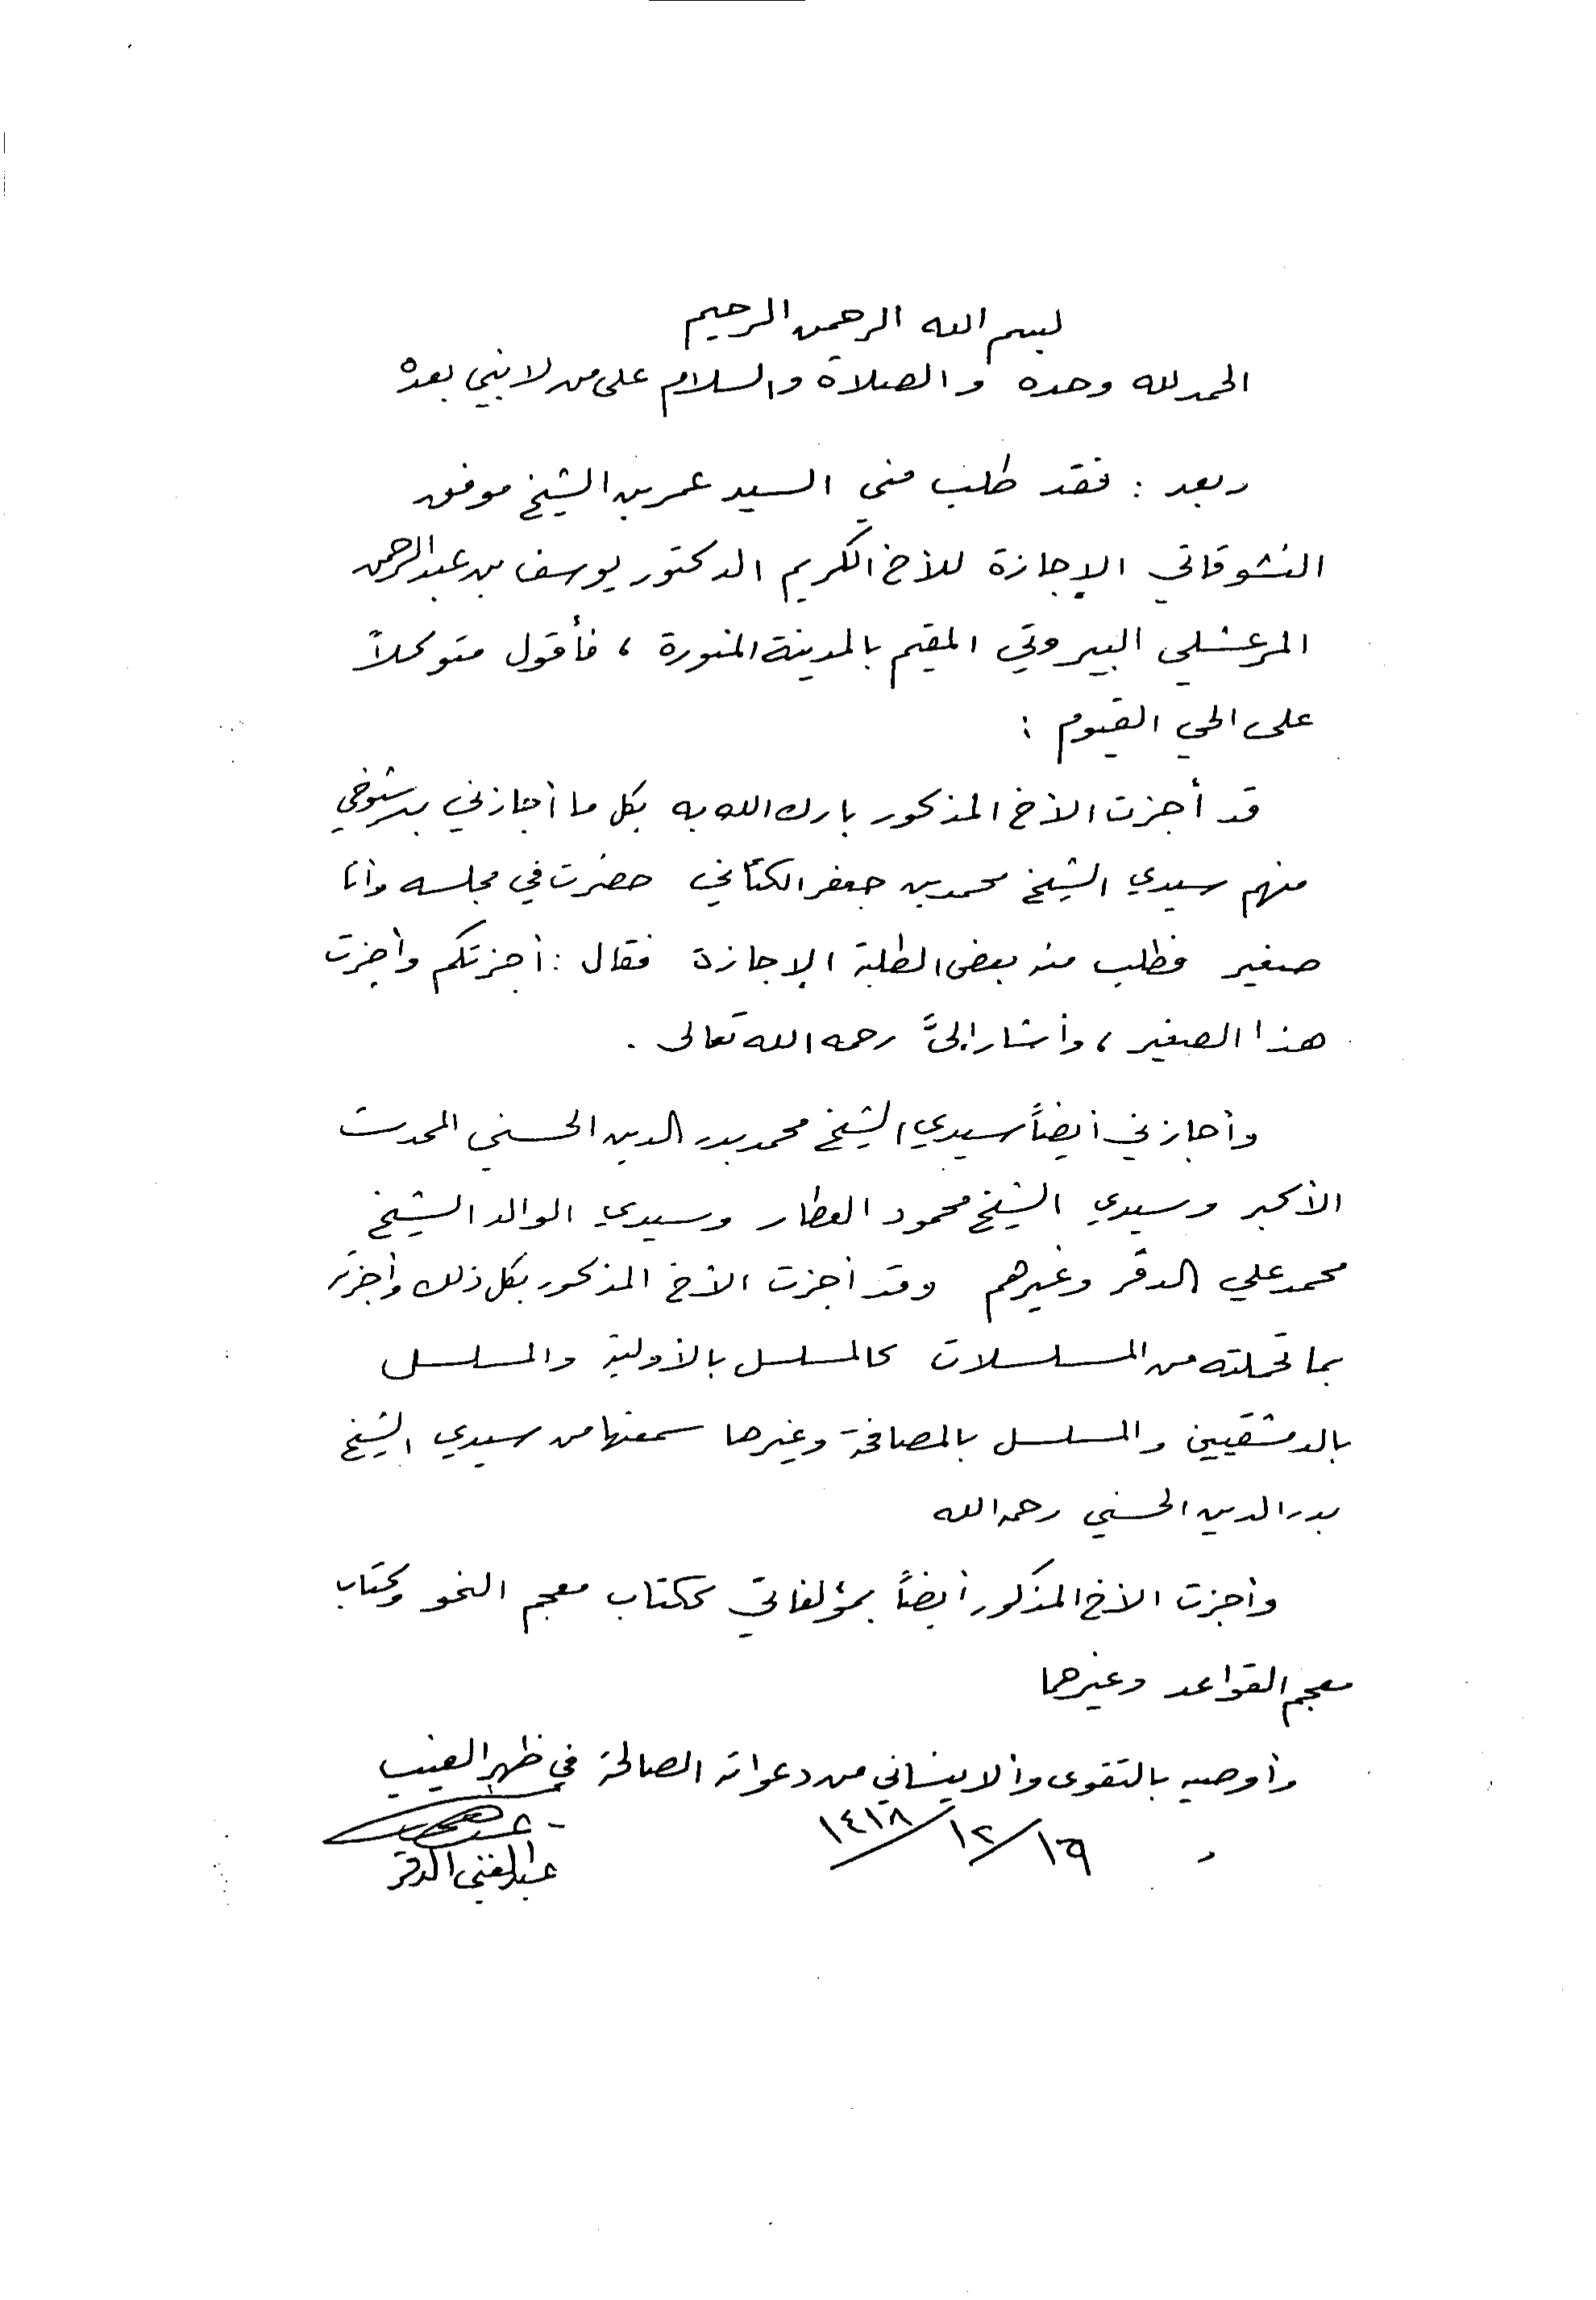 بسم الله الرحمن الرحيم
الحمد لله وحده والصلاة والسلام على من لا نبي بعده
وبعد : فقد طلب مني السيد عمر بن الشيخ موفق
النشوقاتي الإجازة للأخ الكريم الدكتور يوسف بن عبد الرحمن
المرعشلي البيروتي المقيم بالمدينة المنورة ، فأقول متوكلاً
على الحي القيوم :
قد أجزت الأخ المذكور بارك الله به بكل ما أجازني به شيوخي
منهم سيدي الشيخ محمد بن جعفر الكتّاني حضرت في مجلسه وأنا
صغير فطلب منه بعض الطلبة الإجازة فقال : أجزتكم وأجزت
هذا الصغير ، وأشار إليَّ رحمه الله تعالى .
وأجازني أيضاً سيدي الشيخ محمد بدر الدين الحسني المحدث
الأكبر وسيدي الشيخ محمود العطار وسيدي الوالد الشيخ
محمد علي الدقر وغيرهم وقد أجزت الأخ المذكور بكل ذلك وأجزته
بما تحملته من المسلسلات كالمسلسل بالأولية والمسلسل
بالدمشقيين والمسلسل بالمصافحة وغيرها سمعتها من سيدي الشيخ
بدر الدين الحسني رحمه الله
وأجزت الأخ المذكور أيضاً بمؤلفاتي ككتاب معجم النحو وكتاب
معجم القواعد وغيرهما
وأوصيه بالتقوى وألا ينساني من دعواته الصالحة في ظهر الغيب
١٦/١٢/١٤١٨
عبد الغني الدقر